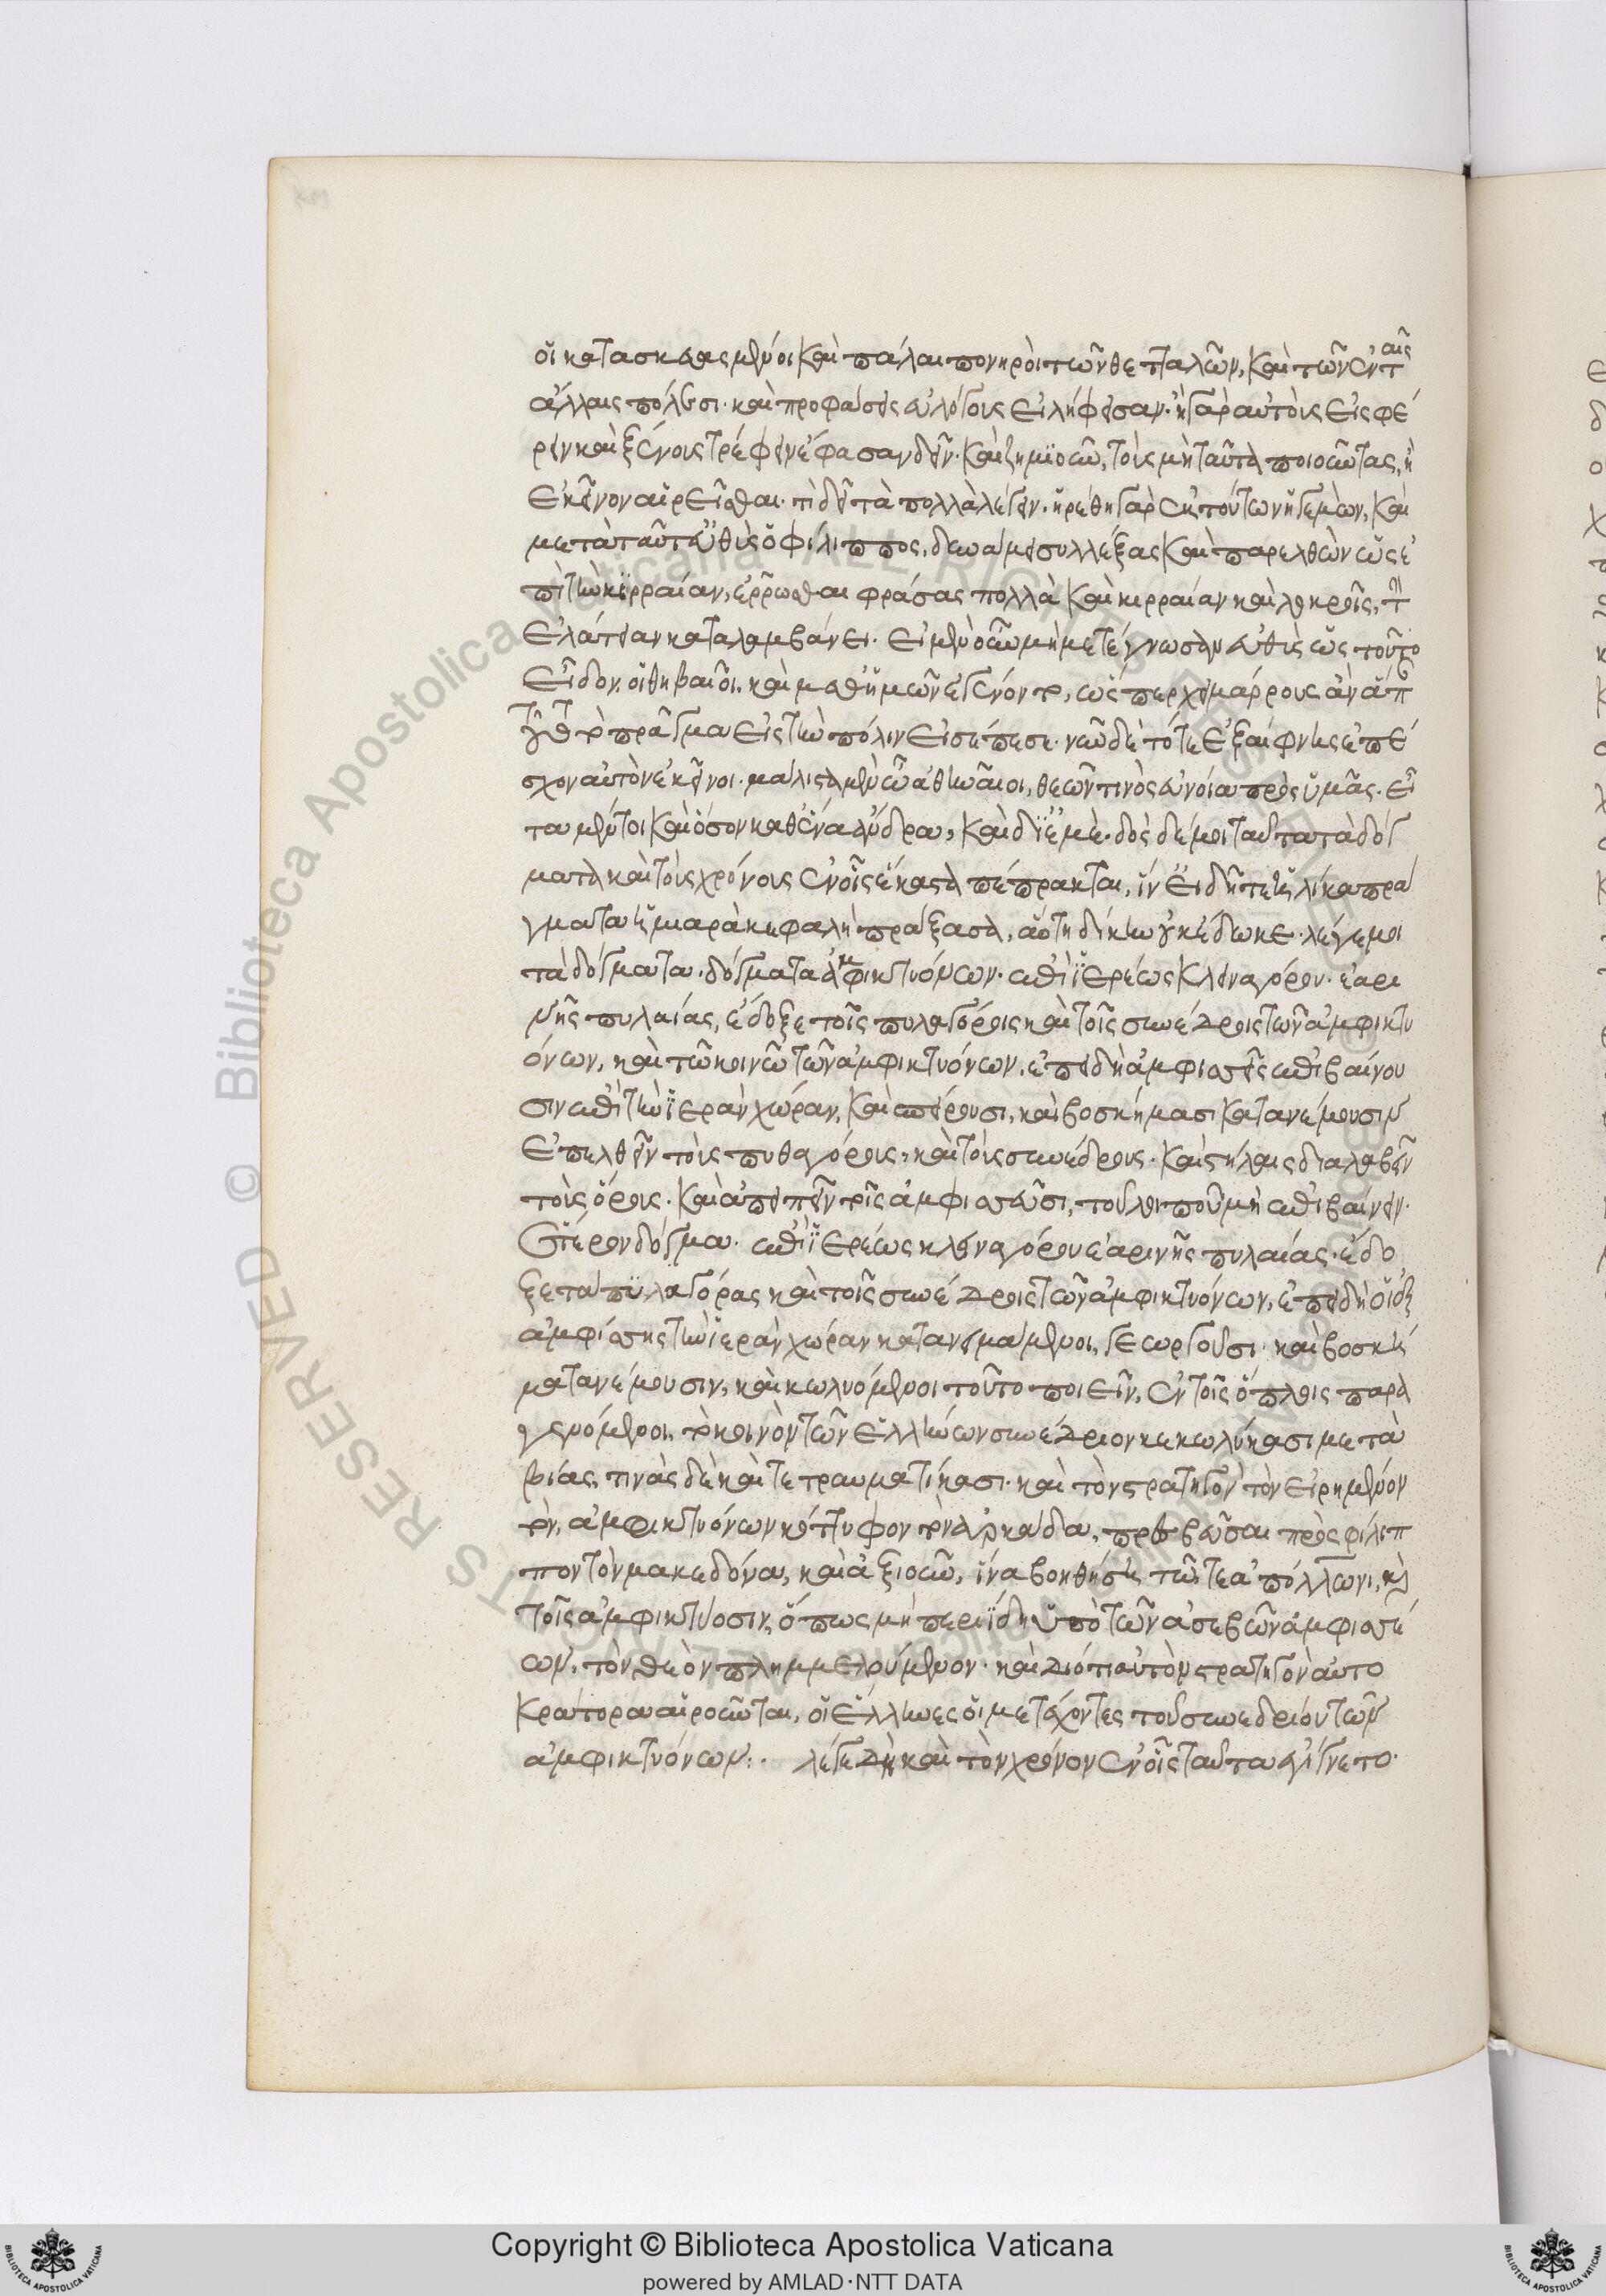 οἱ κατασκευασμένοι καὶ πάλαι πονηροὶ τῶν θετταλῶν, καὶ τῶν ἐν ταῖς
ἄλλαις πόλεσι· καὶ προφάσεις εὐλόγους εἰλήφεσαν· ἢ γὰρ αὐτοὺς εἰσφέ
ρειν καὶ ξένους τρέφειν ἔφασαν δεῖν· καὶ ζημιοῦν, τοὺς μὴ ταῦτα ποιοῦντας, ἢ
ἐκεῖνον αἱρεῖσθαι· τί δεῖ τὰ πολλὰ λέγειν· ἡρέθη γὰρ ἐκ τούτων ἡγεμὼν, καὶ
μετὰ ταῦτ' εὐθὺς ὁ φίλιππος, δύναμιν συλλέξας καὶ παρελθὼν ὡς ἐ
πὶ τὴν κιρραίαν, ἐρρῶσθαι φράσας πολλὰ καὶ κιρραίαν καὶ λοκροῖς, τὴν
ἐλάτειαν καταλαμβάνει· εἰ μὲν οὖν μὴ μετέγνωσαν εὐθὺς ὡς τοῦτο
εἶδον, οἱ θηβαῖοι, καὶ μεθ' ἡμῶν ἐγένοντο, ὥσπερ χειμάρρους ἂν ἅπαν
τοῦτο τὸ πρᾶγμα εἰς τὴν πόλιν εἰσέπεσε· νῦν δὲ τότε ἐξαίφνης ἐπέ
σχον αὐτὸν ἐκεῖνοι· μάλιστα μὲν ὦ ἀθηναῖοι, θεῶν τινὸς εὐνοίᾳ πρὸς ὑμᾶς· εἶ
τα μέντοι καὶ ὅσον καθ' ἕνα ἄνδρα, καὶ δι' ἐμέ· δὸς δέ μοι ταῦτα τὰ δόγ
ματα καὶ τοὺς χρόνους ἐν οἷς ἕκαστα πέπρακται, ἵν' εἰδῆτε ἡλίκα πρά
γματα ἡ μιαρὰ κεφαλὴ πράξασα, αὕτη δίκην οὐκ ἔδωκε· λέγε μοι
τὰ δόγματα· δόγματα ἀμφικτυόνων· ἐπὶ ἱερέως κλειναγόρου· ἐαρι
νῆς πυλαίας, ἔδοξε τοῖς πυλαγόροις καὶ τοῖς συνέδροις τῶν ἀμφικτυ
όνων, καὶ τῷ κοινῷ τῶν ἀμφικτυόνων, ἐπειδὴ ἀμφισσεῖς ἐπιβαίνου
σιν ἐπὶ τὴν ἱερὰν χώραν, καὶ σπείρουσι, καὶ βοσκήμασι κατανέμουσιν
ἐπελθεῖν τοὺς πυθαγόρους, καὶ τοὺς συνέδρους· καὶ στήλαις διαλαβεῖν
τοὺς ὅρους· καὶ ἀπειπεῖν τοῖς ἀμφισσεῦσι, τοῦ λοιποῦ μὴ ἐπιβαίνειν·
ἕτερον δόγμα· ἐπὶ ἱερέως κλειναγόρου ἐαρινῆς πυλαίας· ἔδο
ξε τα πυλαγόρας καὶ τοῖς συνέδροις τῶν ἀμφικτυόνων, ἐπειδὴ οἱ ἐξ
ἀμφίσσης τὴν ἱερὰν χώραν κατανειμάμενοι, γεωργοῦσι· καὶ βοσκή
ματα νέμουσιν, καὶ κωλυόμενοι τοῦτο ποιεῖν, ἐν τοῖς ὅπλοις παρα
γενόμενοι, τὸ κοινὸν τῶν ἑλλήνων συνέδριον κεκωλύκασι μετὰ
βίας, τινὰς δὲ καὶ τετραυματίκασι· καὶ τὸν στρατηγὸν τὸν εἰρημένον
τῶν, ἀμφικτυόνων κόττυφον τὸν ἀρκάδα, πρεσβεῦσαι πρὸς φίλιπ
πον τὸν μακεδόνα, καὶ ἀξιοῦν, ἵνα βοηθήσῃ τῷ τε ἀπόλλωνι, καὶ
τοῖς ἀμφικτύοσιν, ὅπως μὴ περιίδῃ ὑπὸ τῶν ἀσεβῶν ἀμφισσέ
ων, τὸν θεὸν πλημμελούμενον· καὶ διότι αὐτὸν στρατηγὸν αὐτο
κράτορα αἱροῦνται, οἱ ἕλληνες οἱ μετέχοντες τοῦ συνεδρίου τῶν
ἀμφικτυόνων:· λέγε δὴ καὶ τὸν χρόνον ἐν οἷς ταῦτα ἐγίγνετο·
Copyright © Biblioteca Apostolica Vaticana
powered by AMLAD·NTT DATA